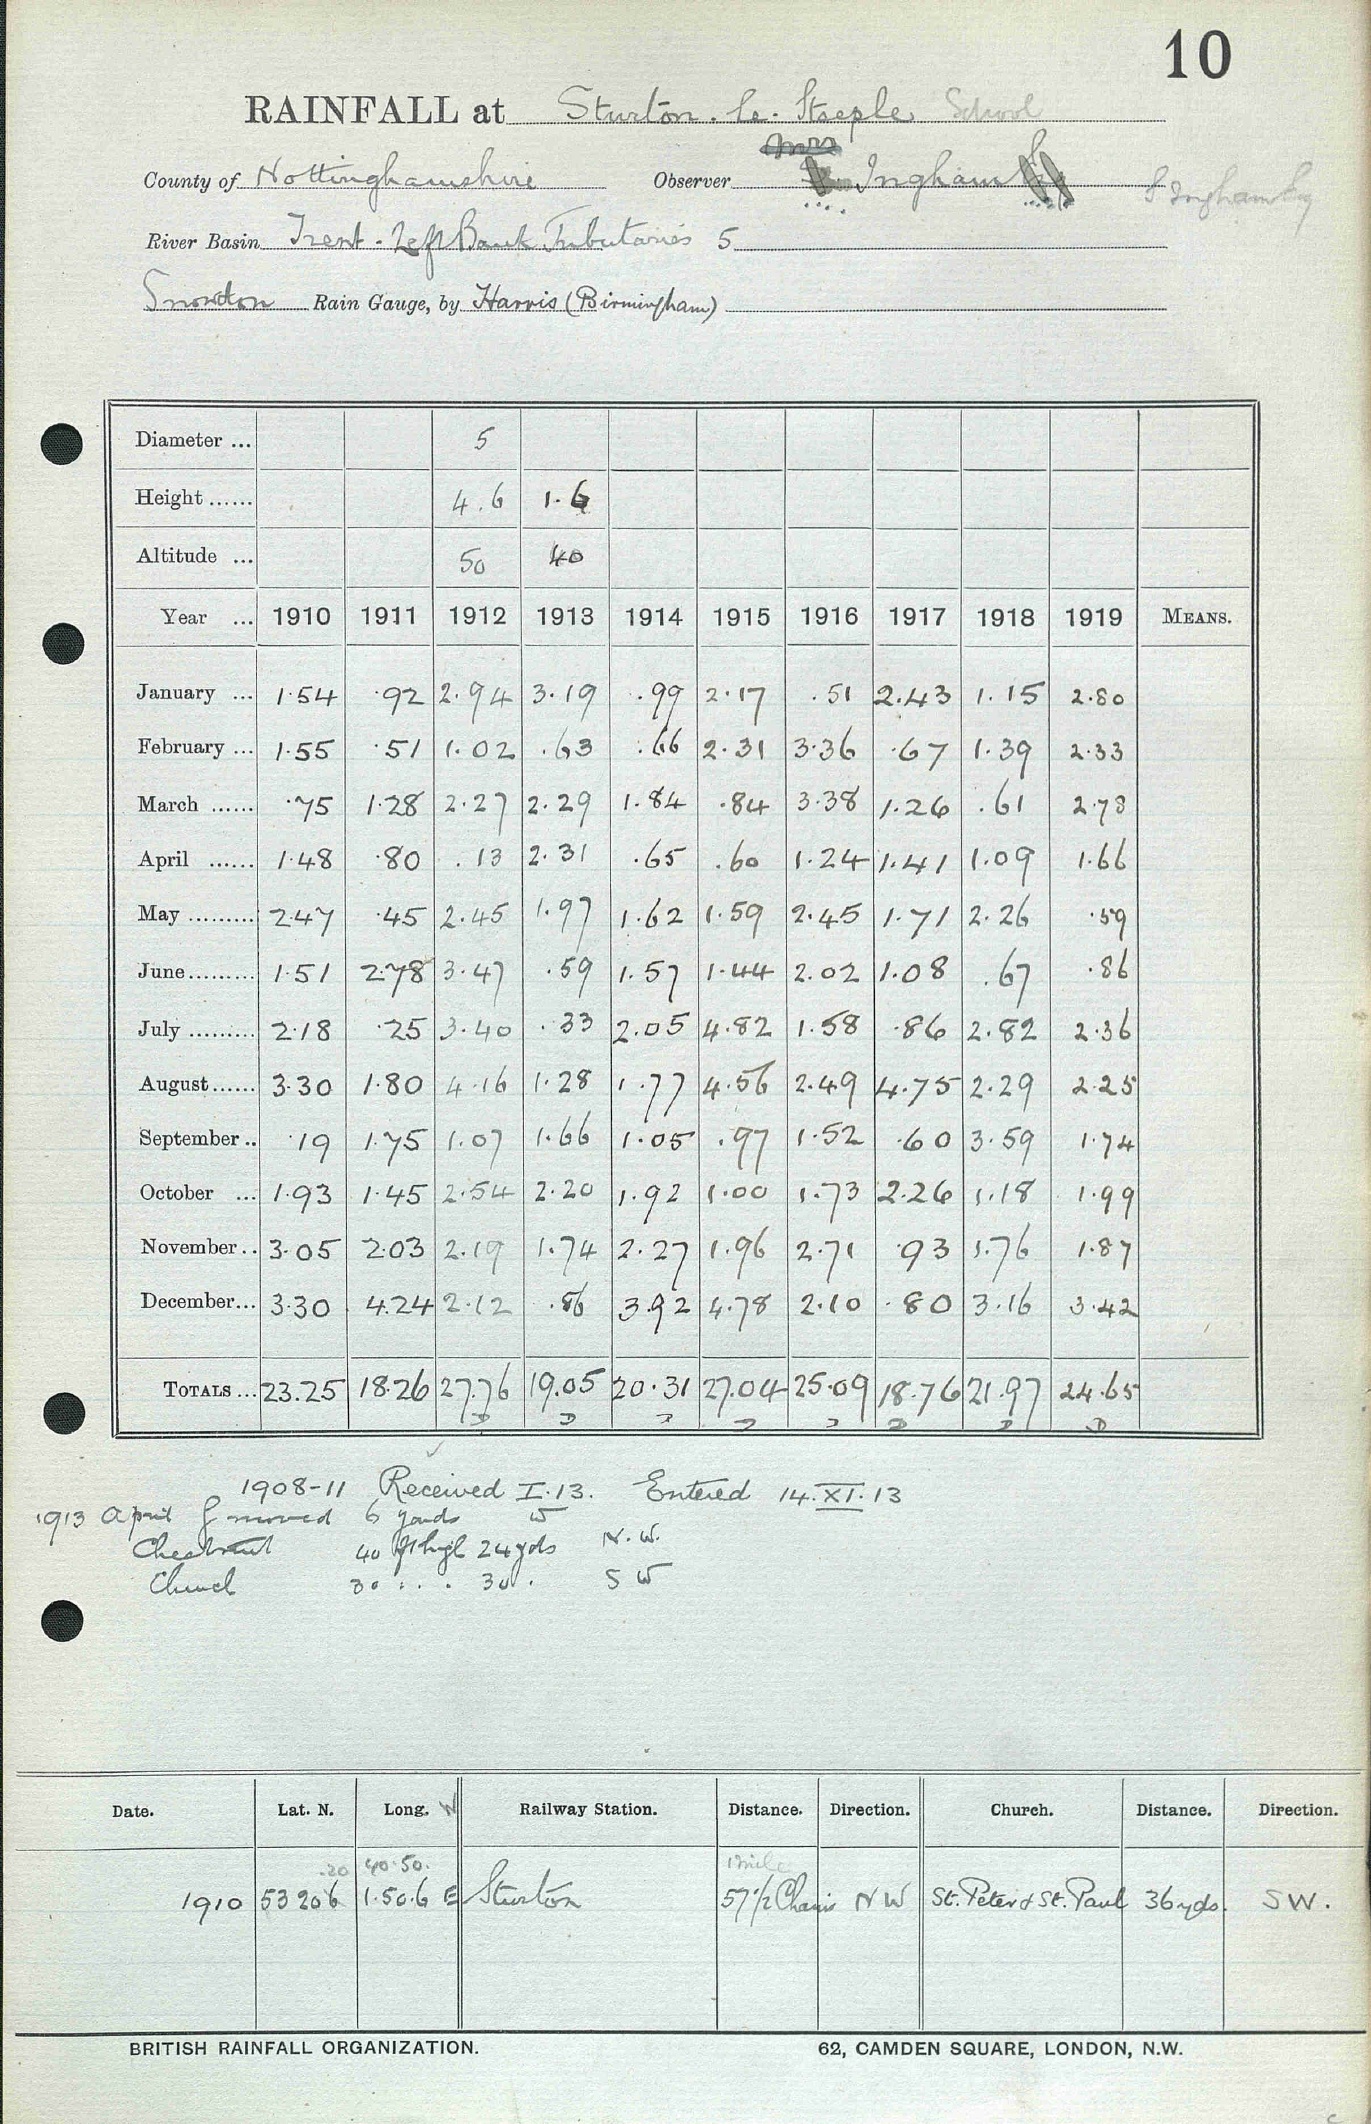 10
RAINFALL at Sturton. le. Steeple School
Mrs
County of Nottinghamshire Observer Ingham
River Basin Trent - Left Bank Tributaries 5
Snowdon Rain Gauge, by Harris (Birmingham)
Diameter ... 5
Height ...... 4.6 1.6
Altitude ... 50 40
Year ... 1910 1911 1912 1913 1914 1915 1916 1917 1918 1919 MEANS.
January ... 1.54 .92 2.94 3.19 .99 2.17 .51 2.43 1.15 2.80
February ... 1.55 .51 1.02 .63 .66 2.31 3.36 .67 1.39 2.33
March ...... .75 1.28 2.27 2.29 1.84 .84 3.38 1.26 .61 2.78
April ...... 1.48 .80 .13 2.31 .65 .60 1.24 1.41 1.09 1.66
May ......... 2.47 .45 2.45 1.97 1.62 1.59 2.45 1.71 2.26 .59
June ......... 1.51 2.78 3.47 .59 1.57 1.44 2.02 1.08 .67 .86
July ......... 2.18 .25 3.40 .33 2.05 4.82 1.58 .86 2.82 2.36
August ...... 3.30 1.80 4.16 1.28 1.77 4.56 2.49 4.75 2.29 2.25
September .. .19 1.75 1.07 1.66 1.05 .97 1.52 .60 3.59 1.74
October ... 1.93 1.45 2.54 2.20 1.92 1.00 1.73 2.26 1.18 1.99
November .. 3.05 2.03 2.19 1.74 2.27 1.96 2.71 .93 1.76 1.87
December ... 3.30 4.24 2.12 .86 3.92 4.78 2.10 .80 3.16 3.42
TOTALS ... 23.25 18.26 27.76 19.05 20.31 27.04 25.09 18.76 21.97 24.65
1908-11 Received I.13. Entered 14.XI.13
1913 April g moved 6 yards W
Chestnut 40 ft high 24 yds N.W.
Church 30 . . . 30 . SW
Date. Lat. N. Long. W Railway Station. Distance. Direction. Church. Distance. Direction.
.20 40.50. 1 mile
1910 53 20 6 1.50.6 E Sturton 57 1/2 Chains NW St. Peter & St. Paul 36 yds. SW.
BRITISH RAINFALL ORGANIZATION. 62, CAMDEN SQUARE, LONDON, N.W.